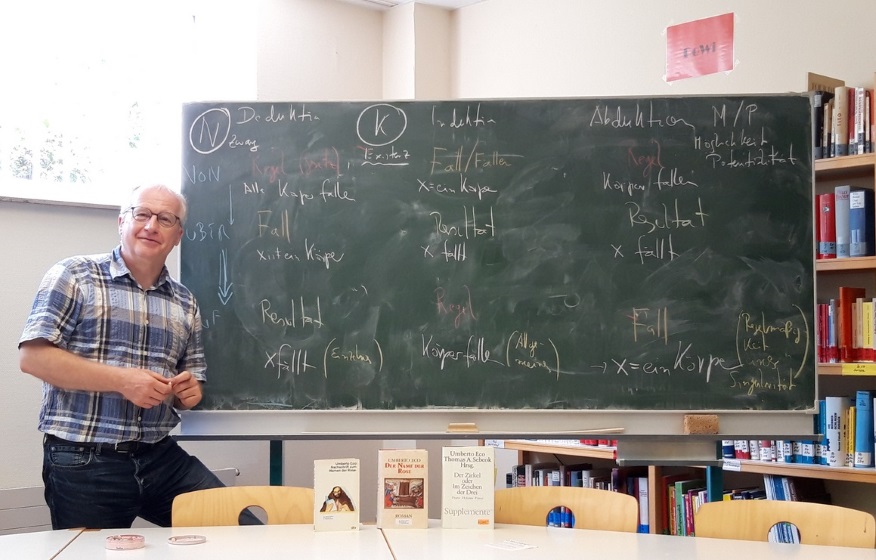 N Deduktion
Zwang
K
Existenz
Induktion
Abduktion M/P
Möglichkeit
Potentialität
VON
ÜBER
Regel
Alle Körper fallen
Fall
x ist ein Körper
Resultat
x fällt
Fall/Fallen
X = ein Körper
Resultat
x fällt
Regel
Körper fallen (Allge-
meine)
Regel
Körper fallen
Resultat
x fällt
Fall
→ X = ein Körper
(Regelmäßig
keit
Singularität)
Umberto Eco
Nachschrift zum
Namen der Rose
UMBERTO ECO
DER NAME DER
ROSE
Umberto Eco
Thomas A. Sebeok
Hrsg.
Der Zirkel
oder
im Zeichen
der Drei
Supplemente